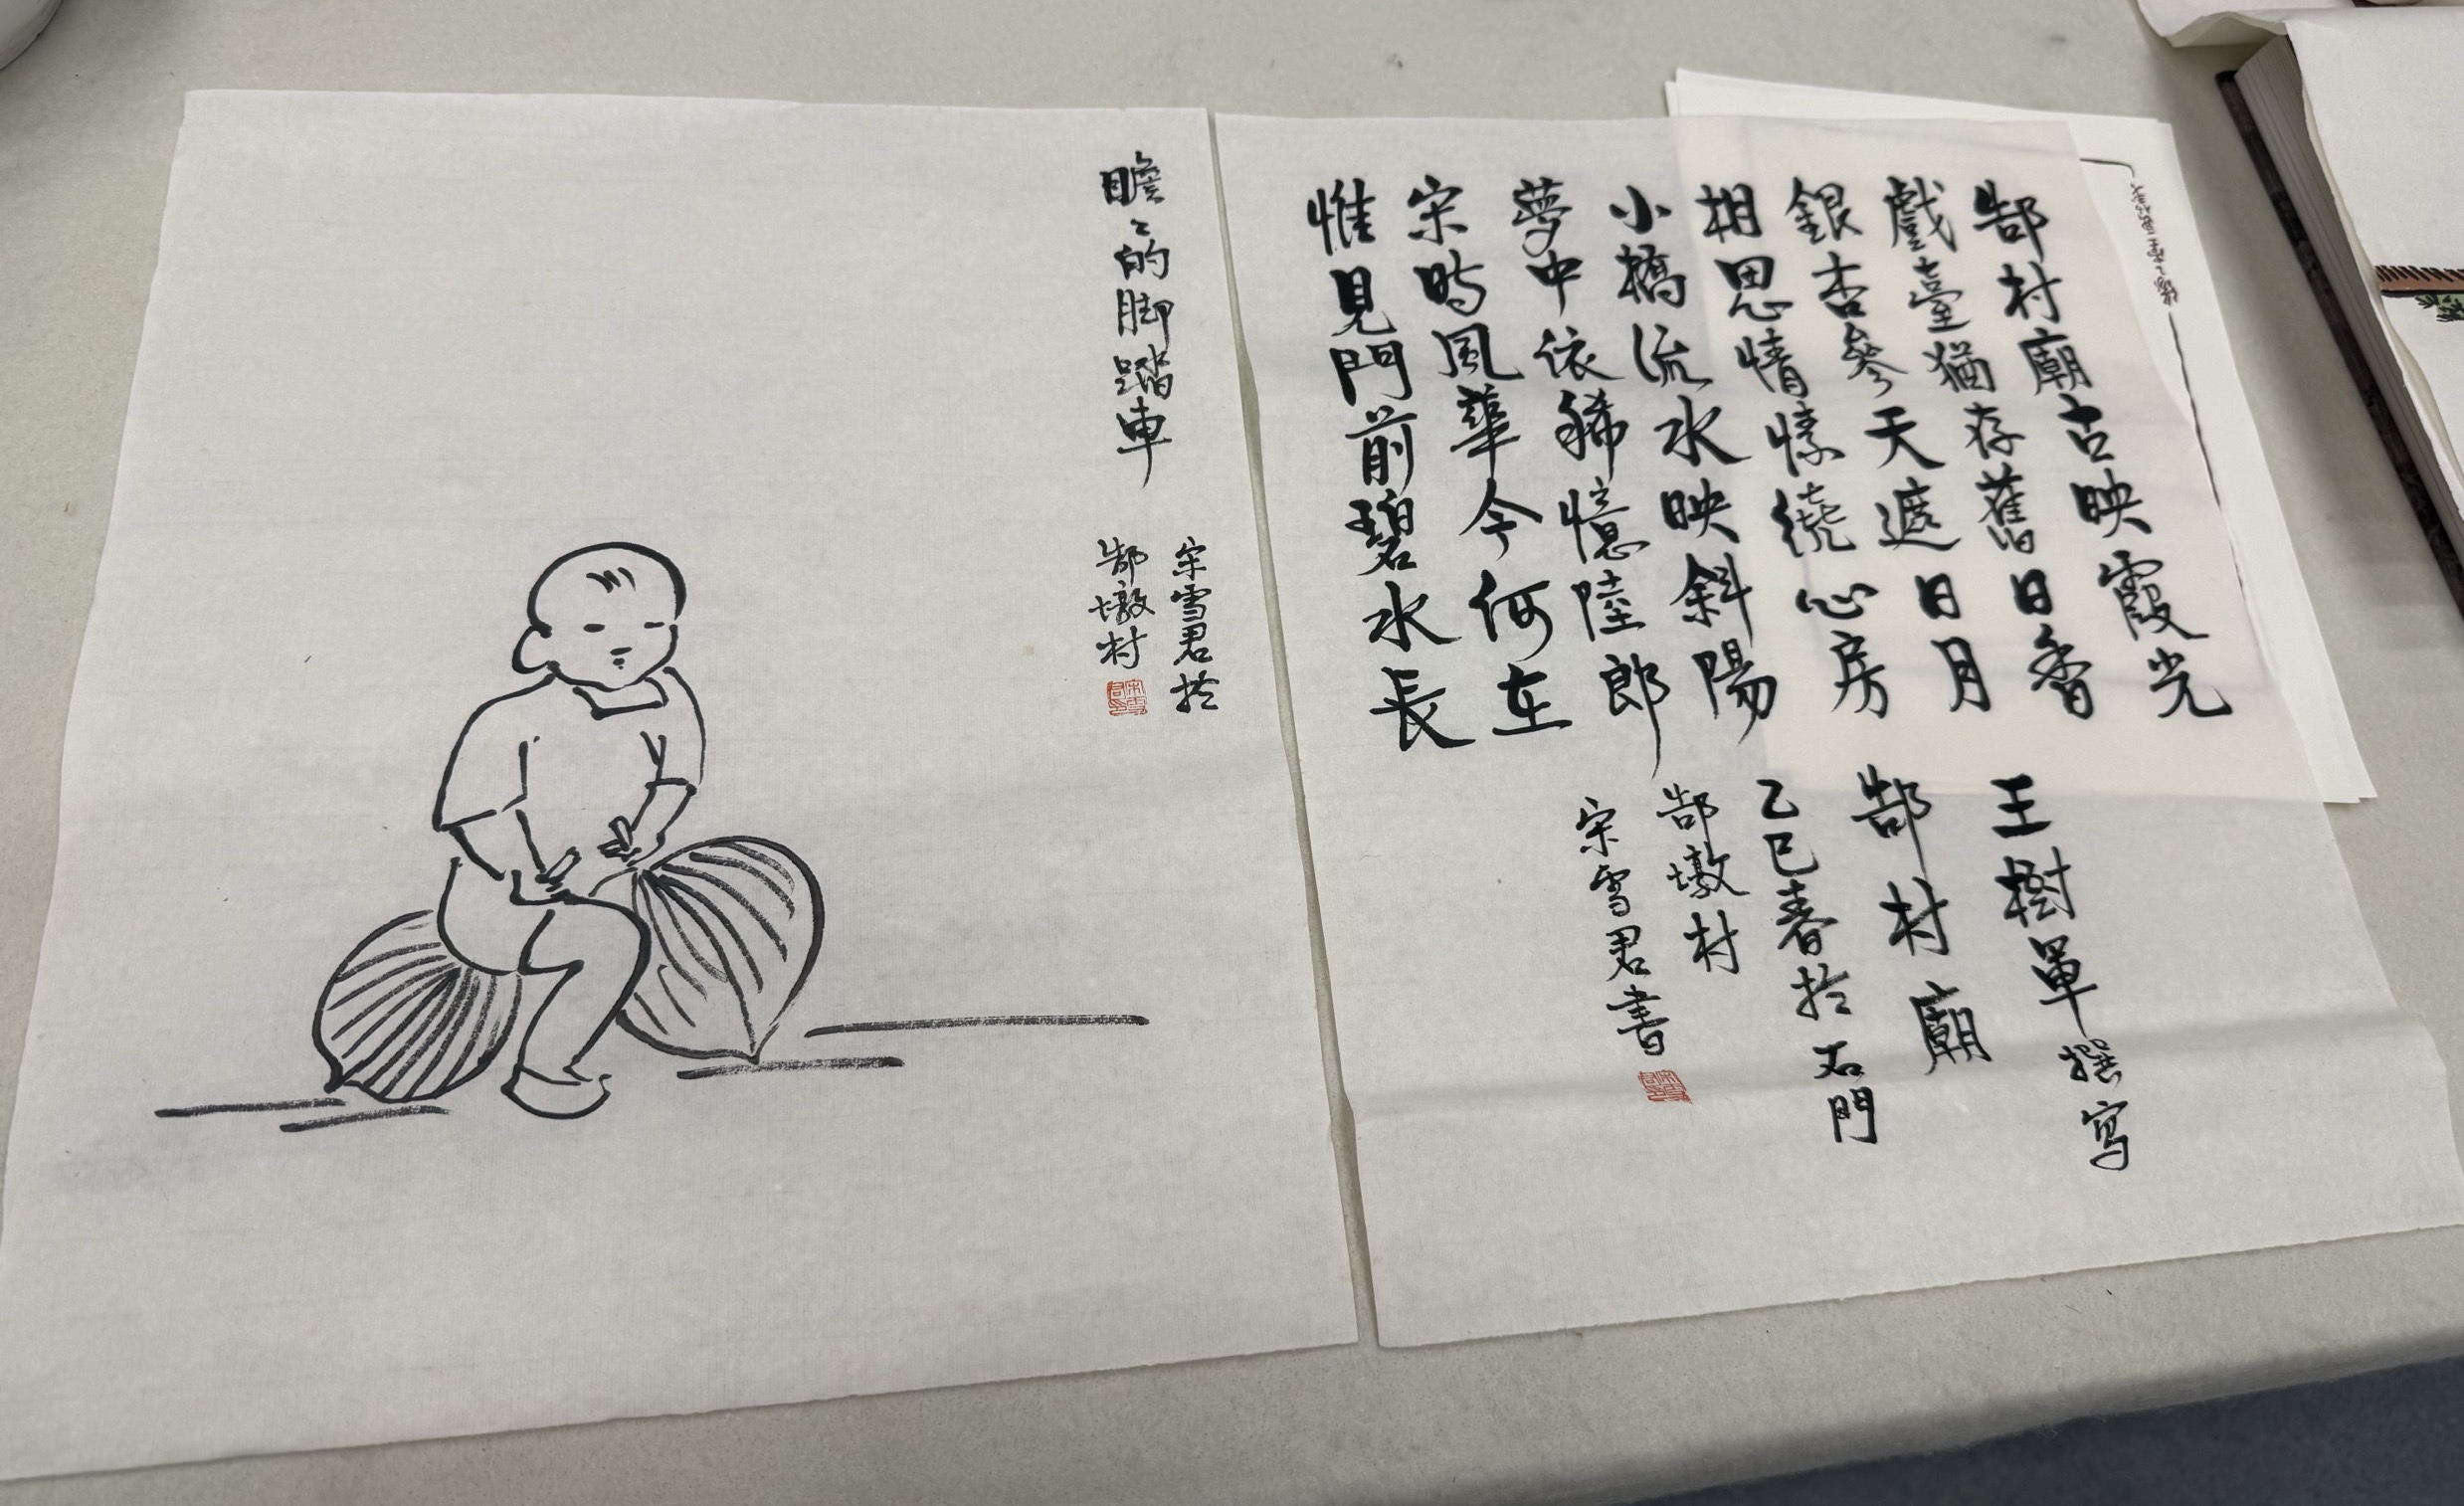 郜村廟古映霞光
戲臺猶存舊日香
銀杏參天遮日月
相思情愫繞心房
小橋流水映斜陽
夢中依稀憶陸郎
宋時風華今何在
惟見門前碧水長
王樹軍撰寫
郜村廟
乙巳春於石門
郜墩村
宋雪君書
瞻〻的脚踏車
宋雪君於
郜墩村